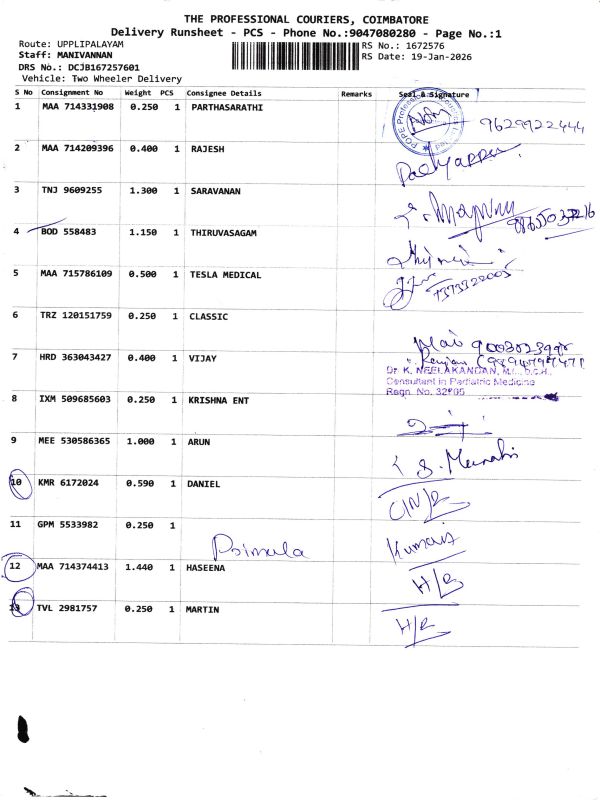 THE PROFESSIONAL COURIERS, COIMBATORE
Delivery Runsheet - PCS - Phone No.:9047080280 - Page No.:1
Route: UPPLIPALAYAM
RS No.: 1672576
Staff: MANIVANNAN
RS Date: 19-Jan-2026
DRS No.: DCJB167257601
Vehicle: Two Wheeler Delivery
S No Consignment No Weight PCS Consignee Details Remarks Seal & Signature
1 MAA 714331908 0.250 1 PARTHASARATHI 9629922444
2 MAA 714209396 0.400 1 RAJESH
3 TNJ 9609255 1.300 1 SARAVANAN
4 BOD 558483 1.150 1 THIRUVASAGAM
5 MAA 715786109 0.500 1 TESLA MEDICAL 7373322005
6 TRZ 120151759 0.250 1 CLASSIC
7 HRD 363043427 0.400 1 VIJAY
Dr. K. NEELAKANDAN,
Consultant in Pediatric Medicine
Regn. No.
8 IXM 509685603 0.250 1 KRISHNA ENT
9 MEE 530586365 1.000 1 ARUN
10 KMR 6172024 0.590 1 DANIEL
11 GPM 5533982 0.250 1 Kumar
Primala
12 MAA 714374413 1.440 1 HASEENA H/R
13 TVL 2981757 0.250 1 MARTIN H/R